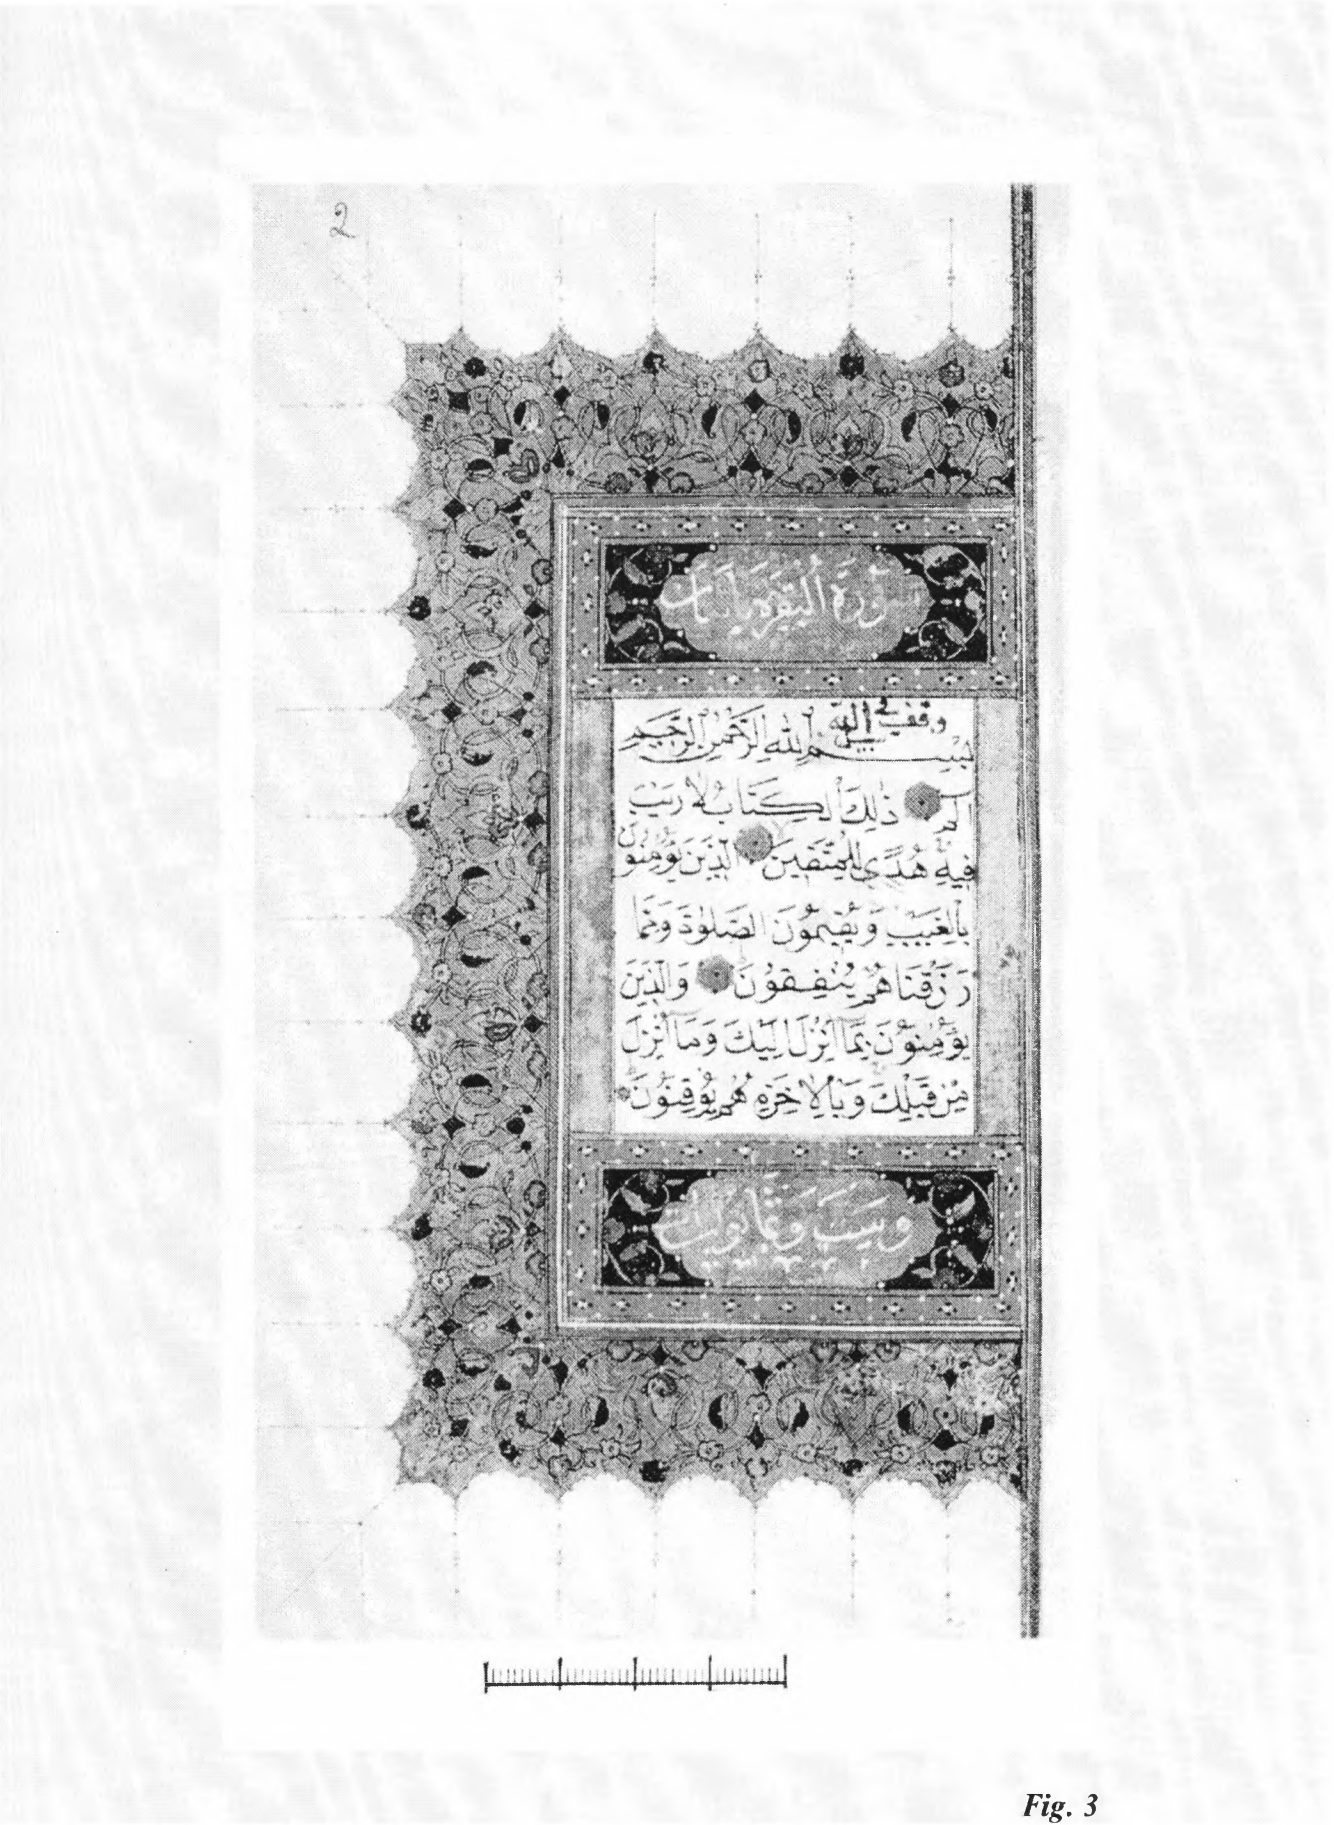 2
سورة البقره مايتان
وقف في الله
بسم الله الرحمن الرحيم
الم ذلك الكتاب لا ريب
فيه هدى للمتقين الذين يؤمنون
بالغيب ويقيمون الصلوة ومما
رزقناهم ينفقون والذين
يؤمنون بما انزل اليك وما انزل
من قبلك وبالاخرة هم يوقنون
Fig. 3